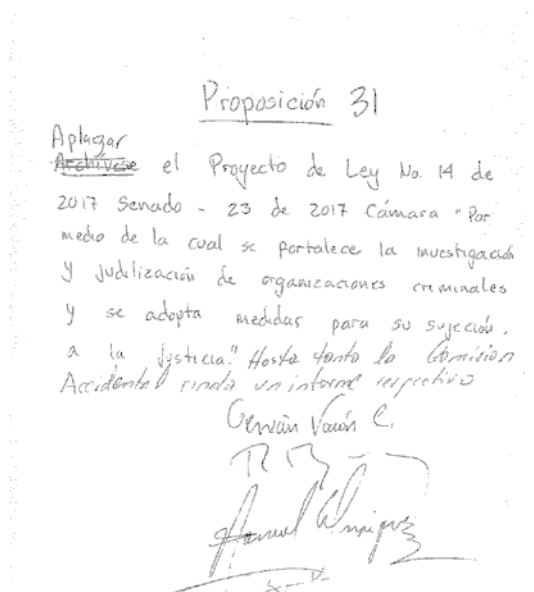 Proposición 31
Aplazar
Archívese el Proyecto de Ley No. 14 de
2017 Senado - 23 de 2017 Cámara "Por
medio de la cual se fortalece la investigación
y judilización de organizaciones criminales
y se adopta medidas para su sujeción.
a la justicia." Hasta tanto la Comision
Accidental rinda un informe respectivo
Germán Varón C.